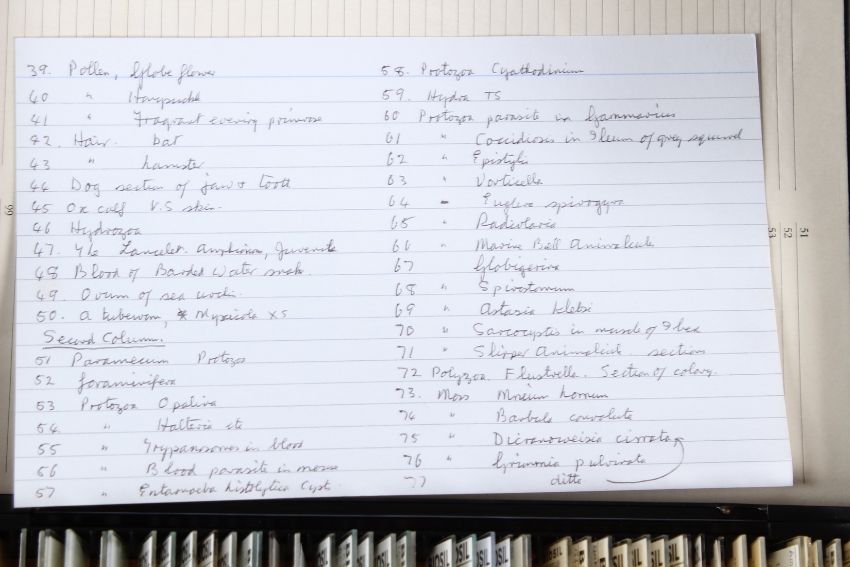 39. Pollen, Globe flower
40 " Honeysuckle
41 " Fragrant evening primrose
42. Hair. bat
43 " hamster
44 Dog section of jaw & tooth
45 Ox calf V.S skin.
46 Hydrozoa
47. The Lancelet. Amphioxus, Juvenile
48 Blood of Banded Water snake.
49. Ovum of sea urchin.
50. A tubeworm, Myxicola X5
Second Column.
51 Paramecium Protozoa
52 foraminifera
53 Protozoa Opalina
54. " Halteria etc
55 " Trypanosomes in blood
56 " Blood parasite in mouse
57 " Entamoeba histolytica Cyst.
58. Protozoa Cyathodinium
59. Hydra TS
60 Protozoa parasite in Gammarus
61 " Coccidiosis in Ileum of grey squirrel
62 " Epistylis
63 " Vorticella
64 - Euglena spirogyra
65 " Radiolaria
66 " Marine Bell Animalcule
67 Globigerina
68 " Spirostomum
69 " Astasia klebsi
70 " Sarcocystis in muscle of Ibex
71 " Slipper Animalcule. sections
72 Polyzoa. Flustrella. Section of colony.
73. Moss Mnium hornum
74 " Barbula convoluta
75 " Dicranoweisia cirrata
76 " Grimmia pulvinata
77 ditto
99
53
52
51